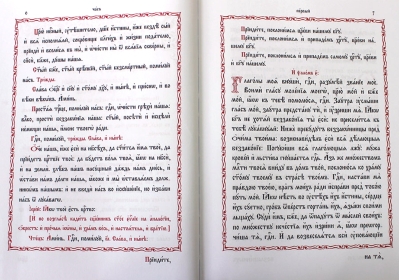 часъ
Царю нбⷭ҇ный, ᲂу҆тѣ́шителю, дш҃е и҆́стины, и҆́же вездѣ̀ сы́й
и҆ всѧ̑ и҆сполнѧ́ѧй, сокро́вище бл҃ги́хъ и҆ жи́зни пода́телю,
прїидѝ и҆ всели́сѧ въ ны̀, и҆ ѡ҆чи́сти ны̀ ѿ всѧ́кїѧ скве́рны, и҆ сп҃сѝ,
бл҃же, дꙋ́шы на́шѧ.
Ст҃ы́й бж҃е, ст҃ы́й крѣ́пкїй, ст҃ы́й безсме́ртный, поми́лꙋй
на́съ. Три́жды.
Сла́ва ѻ҆ц҃ꙋ̀ и҆ сн҃ꙋ и҆ ст҃о́мꙋ дх҃ꙋ, и҆ ны́нѣ, и҆ при́снѡ, и҆ во
вѣ́ки вѣкѡ́въ. А҆ми́нь.
Прест҃а́ѧ трⷪ҇це, поми́лꙋй на́съ: гдⷭ҇и, ѡ҆чи́сти грѣхѝ на́шѧ:
влⷣко, простѝ беззакѡ́нїѧ на̑ша: ст҃ы́й, посѣтѝ и҆ и҆сцѣлѝ
не́мѡщи на́шѧ, и҆́мене твоегѡ̀ ра́ди.
Гдⷭ҇и, поми́лꙋй, три́жды. Сла́ва, и҆ ны́нѣ:
Ѻ҆́ч҃е на́шъ, и҆́же є҆сѝ на нб҃сѣ́хъ, да ст҃и́тсѧ и҆́мѧ твоѐ, да
прїи́детъ црⷭ҇твїе твоѐ: да бꙋ́детъ во́лѧ твоѧ̀, ꙗ҆́кѡ на нб҃сѝ и҆
на землѝ. Хлѣ́бъ на́шъ насꙋ́щный да́ждь на́мъ дне́сь, и҆
ѡ҆ста́ви на́мъ до́лги на́шѧ, ꙗ҆́коже и҆ мы̀ ѡ҆ставлѧ́емъ должникѡ́мъ
на́шымъ: и҆ не введѝ на́съ во и҆скꙋше́нїе, но и҆зба́ви на́съ
ѿ лꙋка́вагѡ.
Чте́цъ: А҆ми́нь. Гдⷭ҇и, поми́лꙋй, в҃і. Сла́ва, и҆ ны́нѣ:
Прїиди́те,
пе́рвый
Прїиди́те, поклони́мсѧ цр҃е́ви на́шемꙋ
бг҃ꙋ.
Прїиди́те, поклони́мсѧ и҆ припаде́мъ хрⷭ҇тꙋ̀, цр҃е́ви на́шемꙋ
бг҃ꙋ.
Прїиди́те, поклони́мсѧ и҆ припаде́мъ самомꙋ̀ хрⷭ҇тꙋ̀, цр҃е́ви
и҆ бг҃ꙋ на́шемꙋ.
Глаго́лы моѧ̑ внꙋшѝ, гдⷭ҇и, разꙋмѣ́й зва́нїе моѐ.
Вонмѝ гла́сꙋ моле́нїѧ моегѡ̀, цр҃ю̀ мо́й и҆ бж҃е
мо́й, ꙗ҆́кѡ къ тебѣ̀ помолю́сѧ, гдⷭ҇и. Заꙋ́тра ᲂу҆слы́ши
гла́съ мо́й, заꙋ́тра предста́нꙋ тѝ, и҆ ᲂу҆́зриши мѧ̀. Ꙗ҆́кѡ
бг҃ъ не хотѧ́й беззако́нїѧ, ты̀ є҆сѝ: не присели́тсѧ къ
тебѣ̀ лꙋка́внꙋѧй. Нижѐ пребꙋ́дꙋтъ беззако̑нницы пред̾
ѻ҆чи́ма твои́ма: возненави́дѣлъ є҆сѝ всѧ̑ дѣ́лающыѧ
беззако́нїе. Погꙋби́ши всѧ̑ глаго́лющыѧ лжꙋ̀: мꙋ́жа
крове́й и҆ льсти́ва гнꙋша́етсѧ гдⷭ҇ь. А҆́зъ же мно́жествомъ
ми́лости твоеѧ̀, вни́дꙋ въ до́мъ тво́й, поклоню́сѧ ко
хра́мꙋ ст҃о́мꙋ твоемꙋ̀, въ стра́сѣ твое́мъ. Гдⷭ҇и, наста́ви
мѧ̀ пра́вдою твое́ю, вра̑гъ мои́хъ ра́ди и҆спра́ви пред̾ тобо́ю
пꙋ́ть мо́й. Ꙗ҆́кѡ нѣ́сть во ᲂу҆стѣ́хъ и҆́хъ и҆́стины, се́рдце
и҆́хъ сꙋ́етно, гро́бъ ѿве́рстъ горта́нь и҆́хъ: ѧ҆зы̑ки свои́ми
льща́хꙋ. Сꙋдѝ и҆̀мъ, бж҃е, да ѿпадꙋ́тъ ѿ мы́слей свои́хъ:
по мно́жествꙋ нече́стїѧ и҆́хъ и҆зри́ни ѧ҆̀, ꙗ҆́кѡ преѡгорчи́ша
тѧ̀, гдⷭ҇и. И҆ да возвеселѧ́тсѧ всѝ ᲂу҆пова́ющїи
на тѧ̀,